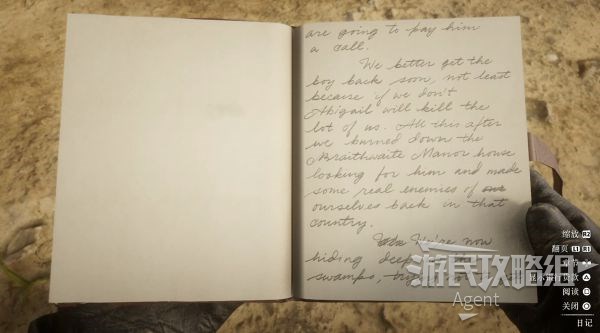 are going to pay him
a call.
We better get the
boy back soon, not least
because if we don't
Abigail will kill the
lot of us. All this after
we burned down the
Braithwaite Manor house
looking for him and made
some real enemies of
ourselves back in that
country.
We're now
hiding deep
swamps,
游民攻略组
Agent
缩放 R2
翻页 L1 R1
阅读
关闭
日记